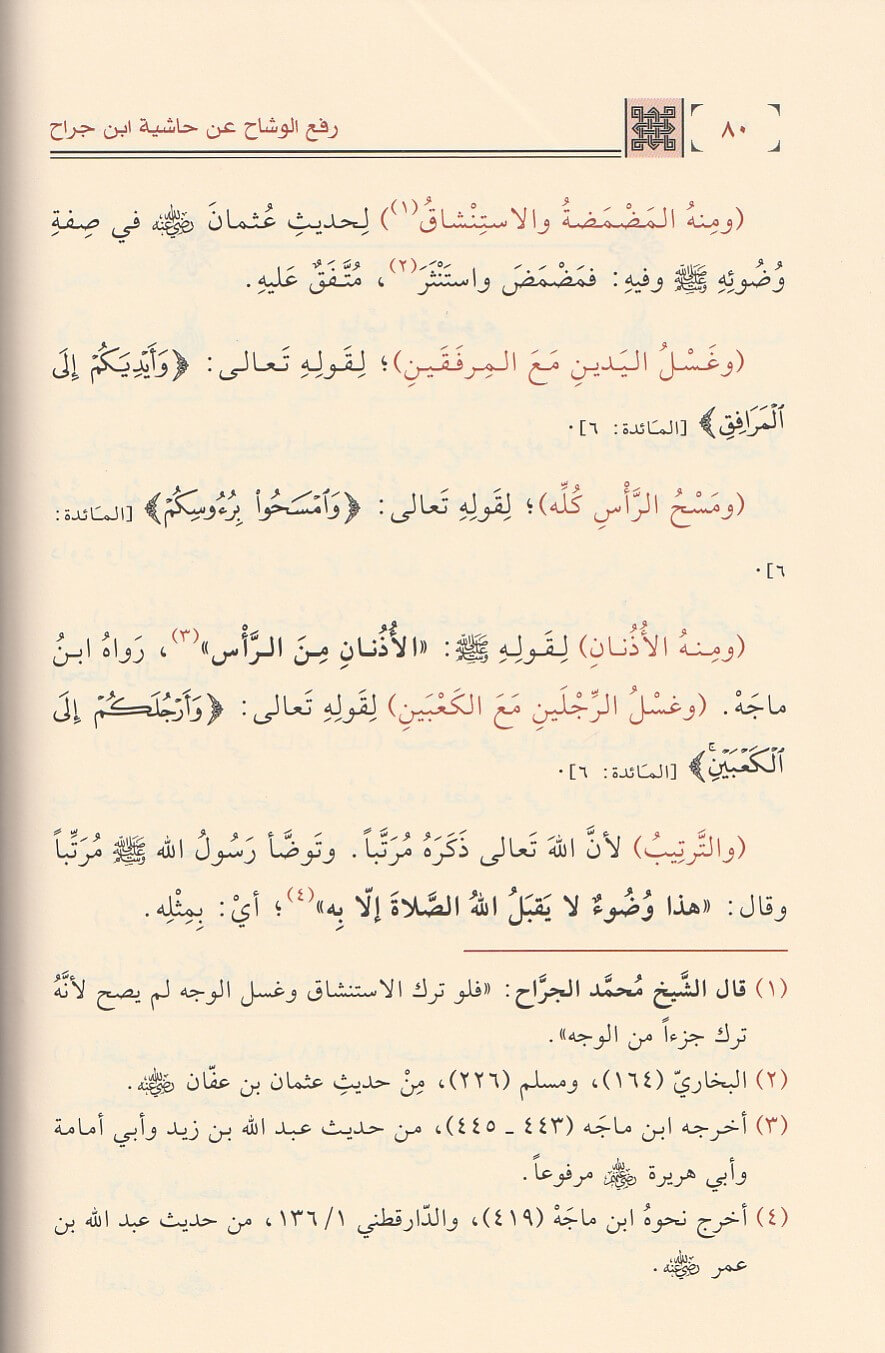 ٨٠ رفع الوشاح عن حاشية ابن جراح
(ومِنهُ المَضْمَضةُ والاستِنْشاقُ(١)) لِحديثِ عُثمانَ رضي الله عنه في صِفةِ
وُضُوئِهِ ﷺ وفيهِ: فمَضْمَضَ واستَنْثَرَ(٢)، مُتَّفَقٌ عَليهِ.
(وغَسْلُ اليَدينِ مَعَ المِرفَقَينِ)؛ لِقَولِهِ تَعالى: ﴿وَأَيۡدِيَكُمۡ إِلَى
ٱلۡمَرَافِقِ﴾ [المَائدة: ٦].
(ومَسْحُ الرَّأْسِ كُلِّه)؛ لِقَولِهِ تَعالى: ﴿وَٱمۡسَحُواْ بِرُءُوسِكُمۡ﴾ [المَائدة:
٦].
(ومِنهُ الأُذُنانِ) لِقَولِهِ ﷺ: «الأُذُنانِ مِنَ الرَّأْس»(٣)، رَواهُ ابنُ
ماجَهْ. (وغسْلُ الرِّجْلَينِ مَعَ الكَعْبَينِ) لِقَولِهِ تَعالى: ﴿وَأَرۡجُلَكُمۡ إِلَى
ٱلۡكَعۡبَيۡنِۚ﴾ [المَائدة: ٦].
(والتَّرتِيبُ) لأنَّ اللهَ تَعالى ذَكَرَهُ مُرَتَّباً. وتَوضَّأ رَسُولُ الله ﷺ مُرَتِّباً
وقال: «هذا وُضُوءٌ لا يَقبَلُ اللهُ الصَّلاةَ إلّا بِه»(٤)؛ أيْ: بِمِثْلِه.
(١) قال الشَّيخ مُحمَّد الجرَّاح: «فلو ترك الاستنشاق وغسل الوجه لم يصح لأنَّهُ
ترك جزءاً من الوجه».
(٢) البخاريّ (١٦٤)، ومسلم (٢٢٦)، مِنْ حديثِ عثمان بن عفّان رضي الله عنه.
(٣) أخرجه ابن ماجَه (٤٤٣ ـ ٤٤٥)، من حديث عبد الله بن زيد وأبي أمامة
وأبي هريرة رضي الله عنهم مرفوعاً.
(٤) أخرج نحوهُ ابن ماجَهْ (٤١٩)، والدّارقطني ١/ ١٣٦، من حديث عبد الله بن
عمر رضي الله عنه.